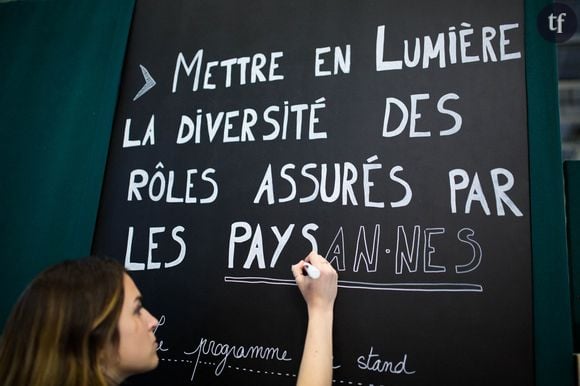 tf
> Mettre en Lumière
la diversité des
rôles assurés par
les paysan·nes
programme
stand